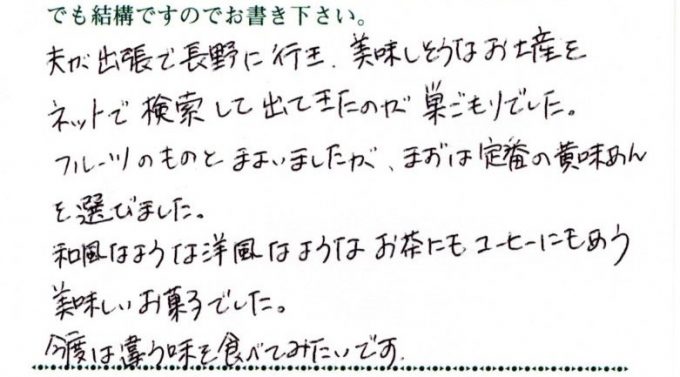 でも結構ですのでお書き下さい。
夫が出張で長野に行き、美味しそうなお土産を
ネットで検索して出てきたのが巣ごもりでした。
フルーツのものとまよいましたが、まずは定番の黄味あん
を選びました。
和風なような洋風なようなお茶にもコーヒーにもあう
美味しいお菓子でした。
今度は違う味を食べてみたいです.